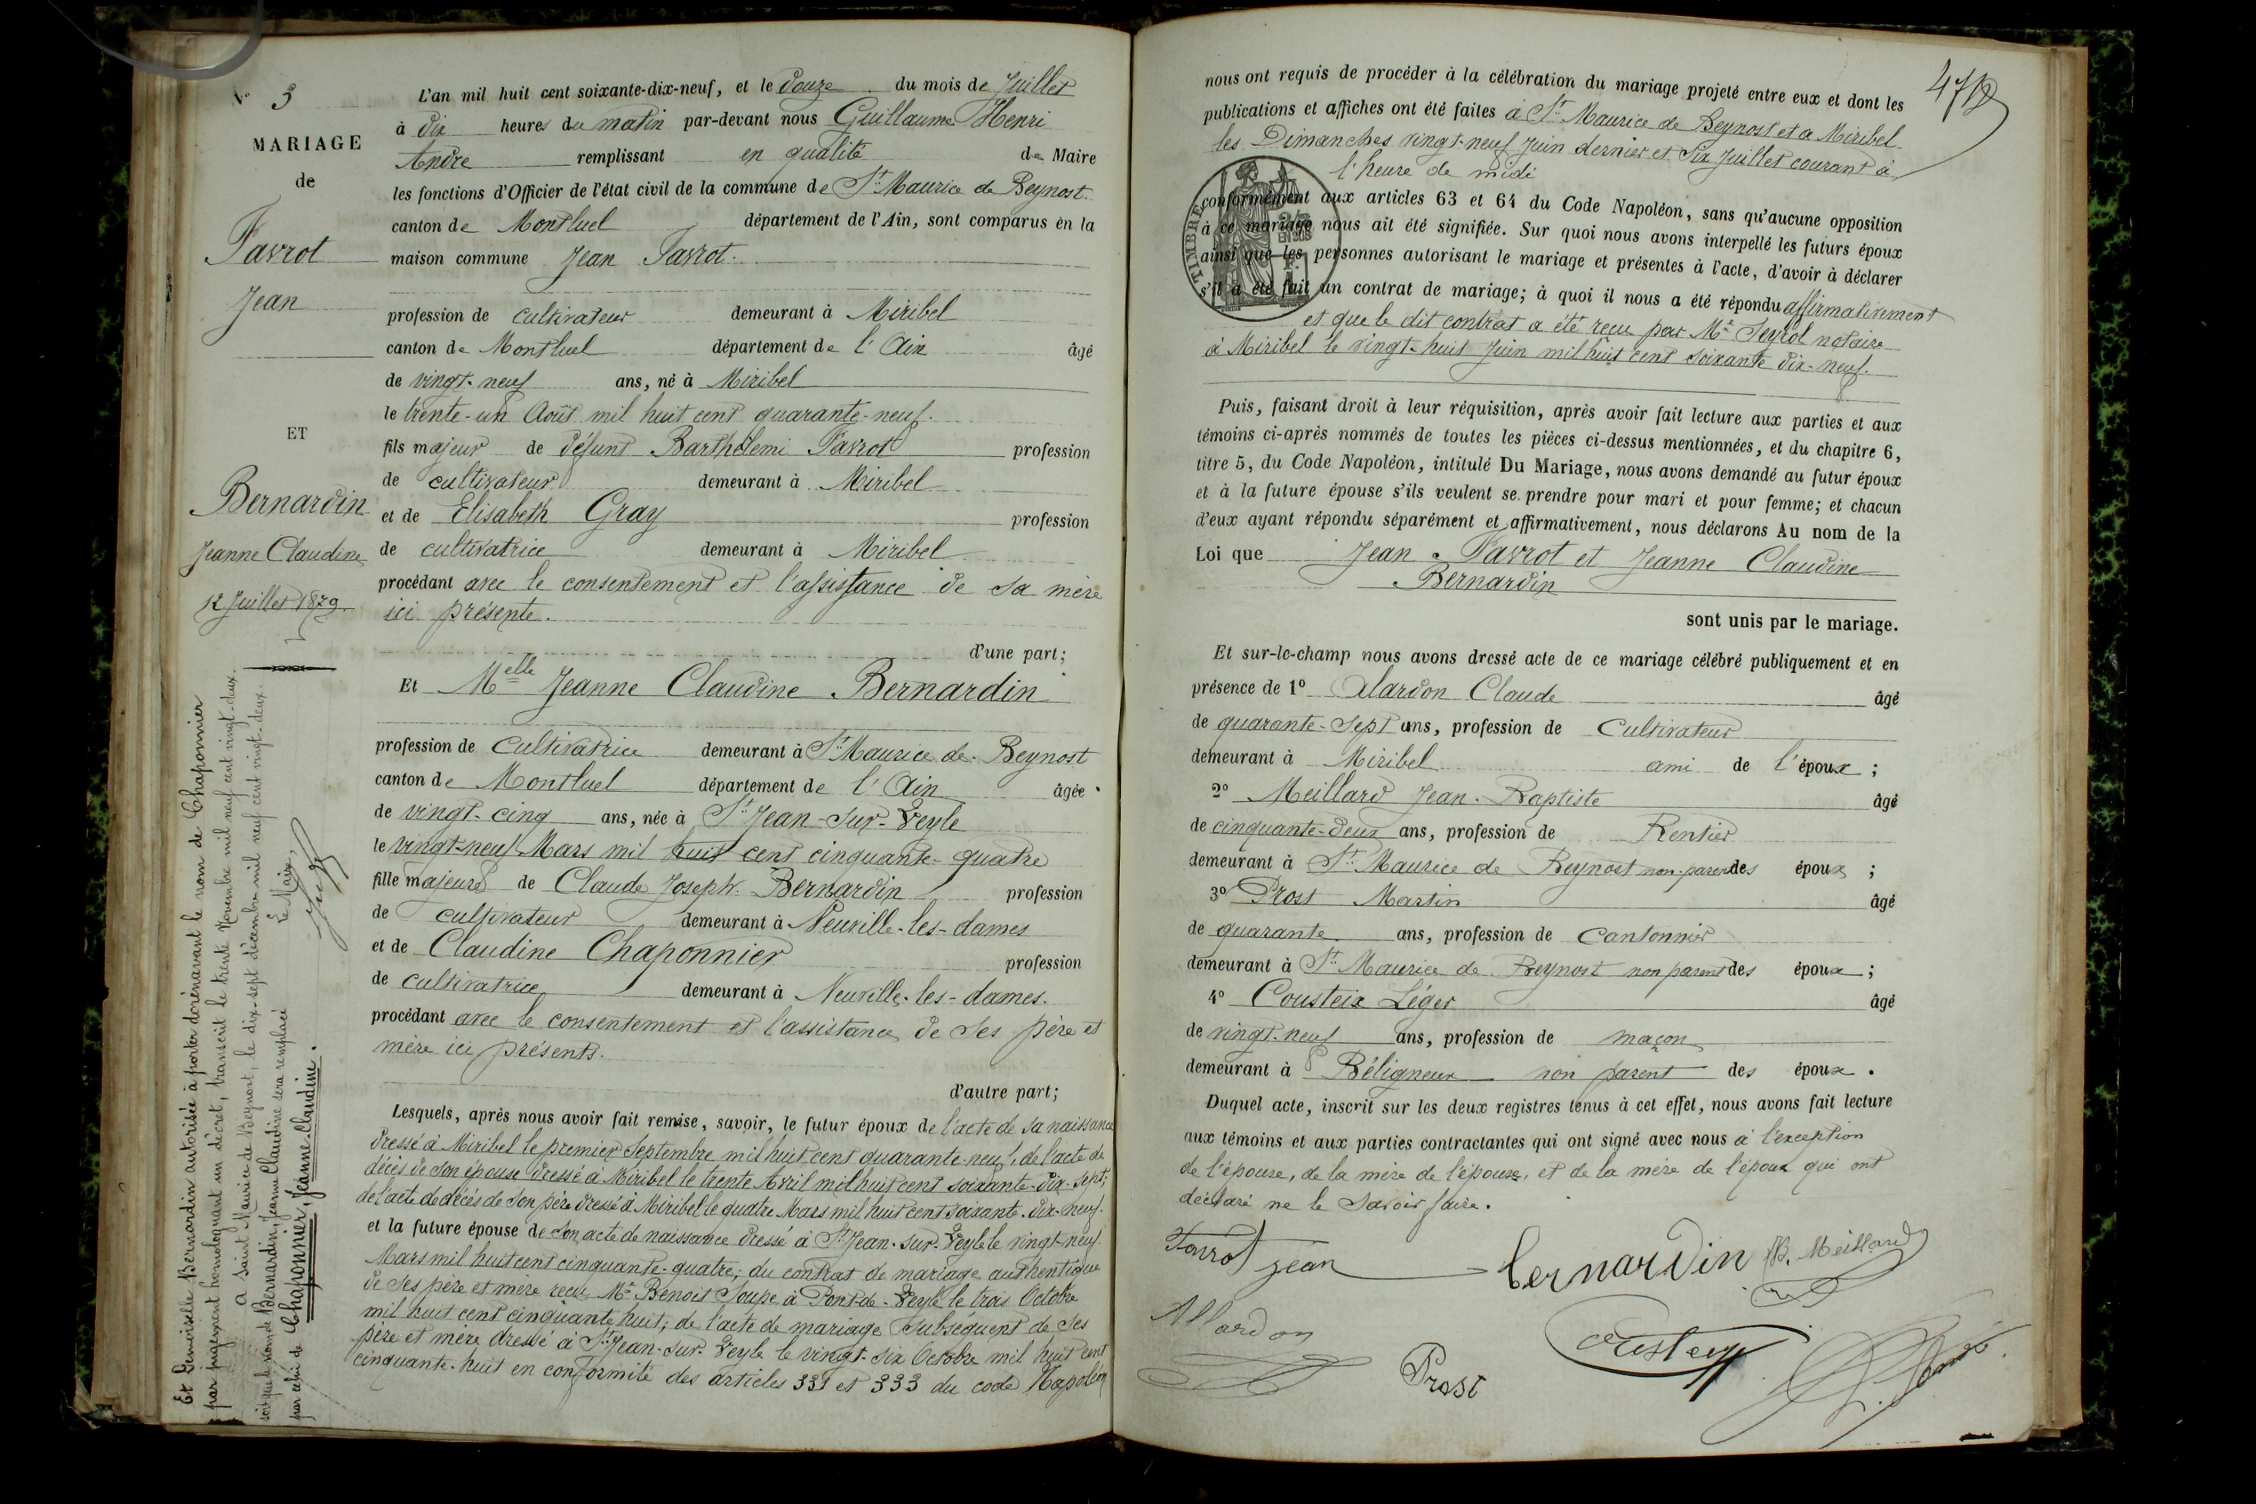 N° 3
MARIAGE
de
Favrot
Jean
ET
Bernardin
Jeanne Claudine
12 Juillet 1879
Et Demoiselle Bernardin autorisée à porter dorénavant le nom de Chaponnier
par jugement homologuant un décret, transcrit le trente Novembre mil neuf cent vingt-deux.
A Saint Maurice de Beynost, le dix-sept décembre mil neuf cent vingt-deux.
soit que le nom de Bernardin, Jeanne Claudine sera remplacé Le Maire,
par celui de Chaponnier, Jeanne-Claudine.
L'an mil huit cent soixante-dix-neuf, et le douze du mois de Juillet
à dix heures du matin par-devant nous Guillaume Henri
André remplissant en qualité de Maire
les fonctions d'Officier de l'état civil de la commune de St Maurice de Beynost.
canton de Montluel département de l'Ain, sont comparus en la
maison commune Jean Favrot.
profession de cultivateur demeurant à Miribel
canton de Montluel département de l'Ain âgé
de vingt-neuf ans, né à Miribel
le trente-un Août mil huit cent quarante-neuf.
fils majeur de défunt Barthélemi Favrot profession
de cultivateur demeurant à Miribel
et de Elisabeth Gray profession
de cultivatrice demeurant à Miribel
procédant avec le consentement et l'assistance de sa mère
ici présente.
d'une part;
Et Melle Jeanne Claudine Bernardin
profession de Cultivatrice demeurant à St Maurice de Beynost
canton de Montluel département de l'Ain âgée
de vingt-cinq ans, née à St Jean-sur-Veyle
le vingt-neuf Mars mil huit cent cinquante-quatre
fille majeure de Claude Joseph Bernardin profession
de cultivateur demeurant à Neuville-les-dames
et de Claudine Chaponnier profession
de cultivatrice demeurant à Neuville-les-dames.
procédant avec le consentement et l'assistance de ses père et
mère ici présents.
d'autre part;
Lesquels, après nous avoir fait remise, savoir, le futur époux de l'acte de sa naissance
dressé à Miribel le premier Septembre mil huit cent quarante-neuf, de l'acte de
décès de son épouse dressé à Miribel le trente Avril mil huit cent soixante-dix-sept;
de l'acte de décès de son père dressé à Miribel le quatre Mars mil huit cent soixante-dix-neuf.
et la future épouse de son acte de naissance dressé à St Jean-sur-Veyle le vingt-neuf
Mars mil huit cent cinquante-quatre; du contrat de mariage authentique
de ses père et mère reçu Me Benoit Soupe à Pont-de-Veyle le trois Octobre
mil huit cent cinquante huit; de l'acte de mariage subsequent de ses
père et mère dressé à St Jean-sur-Veyle le vingt-six Octobre mil huit cent
cinquante-huit en conformité des articles 331 et 333 du code Napoléon
nous ont requis de procéder à la célébration du mariage projeté entre eux et dont les
publications et affiches ont été faites à St Maurice de Beynost et à Miribel
les Dimanches vingt-neuf Juin dernier et Six Juillet courant à
l'heure de midi
conformément aux articles 63 et 64 du Code Napoléon, sans qu'aucune opposition
à ce mariage nous ait été signifiée. Sur quoi nous avons interpellé les futurs époux
ainsi que les personnes autorisant le mariage et présentes à l'acte, d'avoir à déclarer
s'il a été fait un contrat de mariage; à quoi il nous a été répondu affirmativement
et que le dit contrat a été reçu par Me Seyrol notaire
à Miribel le vingt-huit Juin mil huit cent soixante dix-neuf.
TIMBRE
Puis, faisant droit à leur réquisition, après avoir fait lecture aux parties et aux
témoins ci-après nommés de toutes les pièces ci-dessus mentionnées, et du chapitre 6,
titre 5, du Code Napoléon, intitulé Du Mariage, nous avons demandé au futur époux
et à la future épouse s'ils veulent se prendre pour mari et pour femme; et chacun
d'eux ayant répondu séparément et affirmativement, nous déclarons Au nom de la
Loi que Jean Favrot et Jeanne Claudine
Bernardin
sont unis par le mariage.
Et sur-le-champ nous avons dressé acte de ce mariage célébré publiquement et en
présence de 1° Alardon Claude âgé
de quarante-sept ans, profession de Cultivateur
demeurant à Miribel ami de l'époux;
2° Meillard Jean-Baptiste âgé
de cinquante-deux ans, profession de Rentier
demeurant à St Maurice de Beynost non parent des époux;
3° Prost Martin âgé
de quarante ans, profession de Cantonnier
demeurant à St Maurice de Beynost non parent des époux;
4° Cousteix Léger âgé
de vingt-neuf ans, profession de maçon
demeurant à Béligneux non parent des époux.
Duquel acte, inscrit sur les deux registres tenus à cet effet, nous avons fait lecture
aux témoins et aux parties contractantes qui ont signé avec nous à l'exception
de l'épouse, de la mère de l'épouse, et de la mère de l'époux qui ont
déclaré ne le savoir faire.
Favrot jean Bernardin JB. Meillard
Allardon
Prost